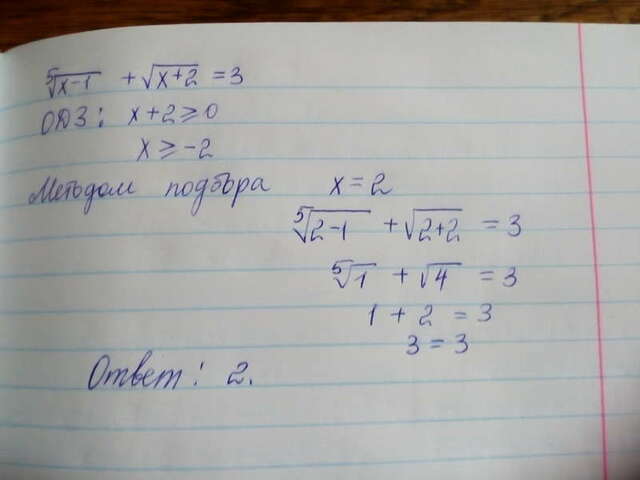 ⁵√(x-1) + √(x+2) = 3
ОДЗ: x+2 ≥ 0
x ≥ -2
Методом подбора x = 2
⁵√(2-1) + √(2+2) = 3
⁵√1 + √4 = 3
1 + 2 = 3
3 = 3
Ответ: 2.